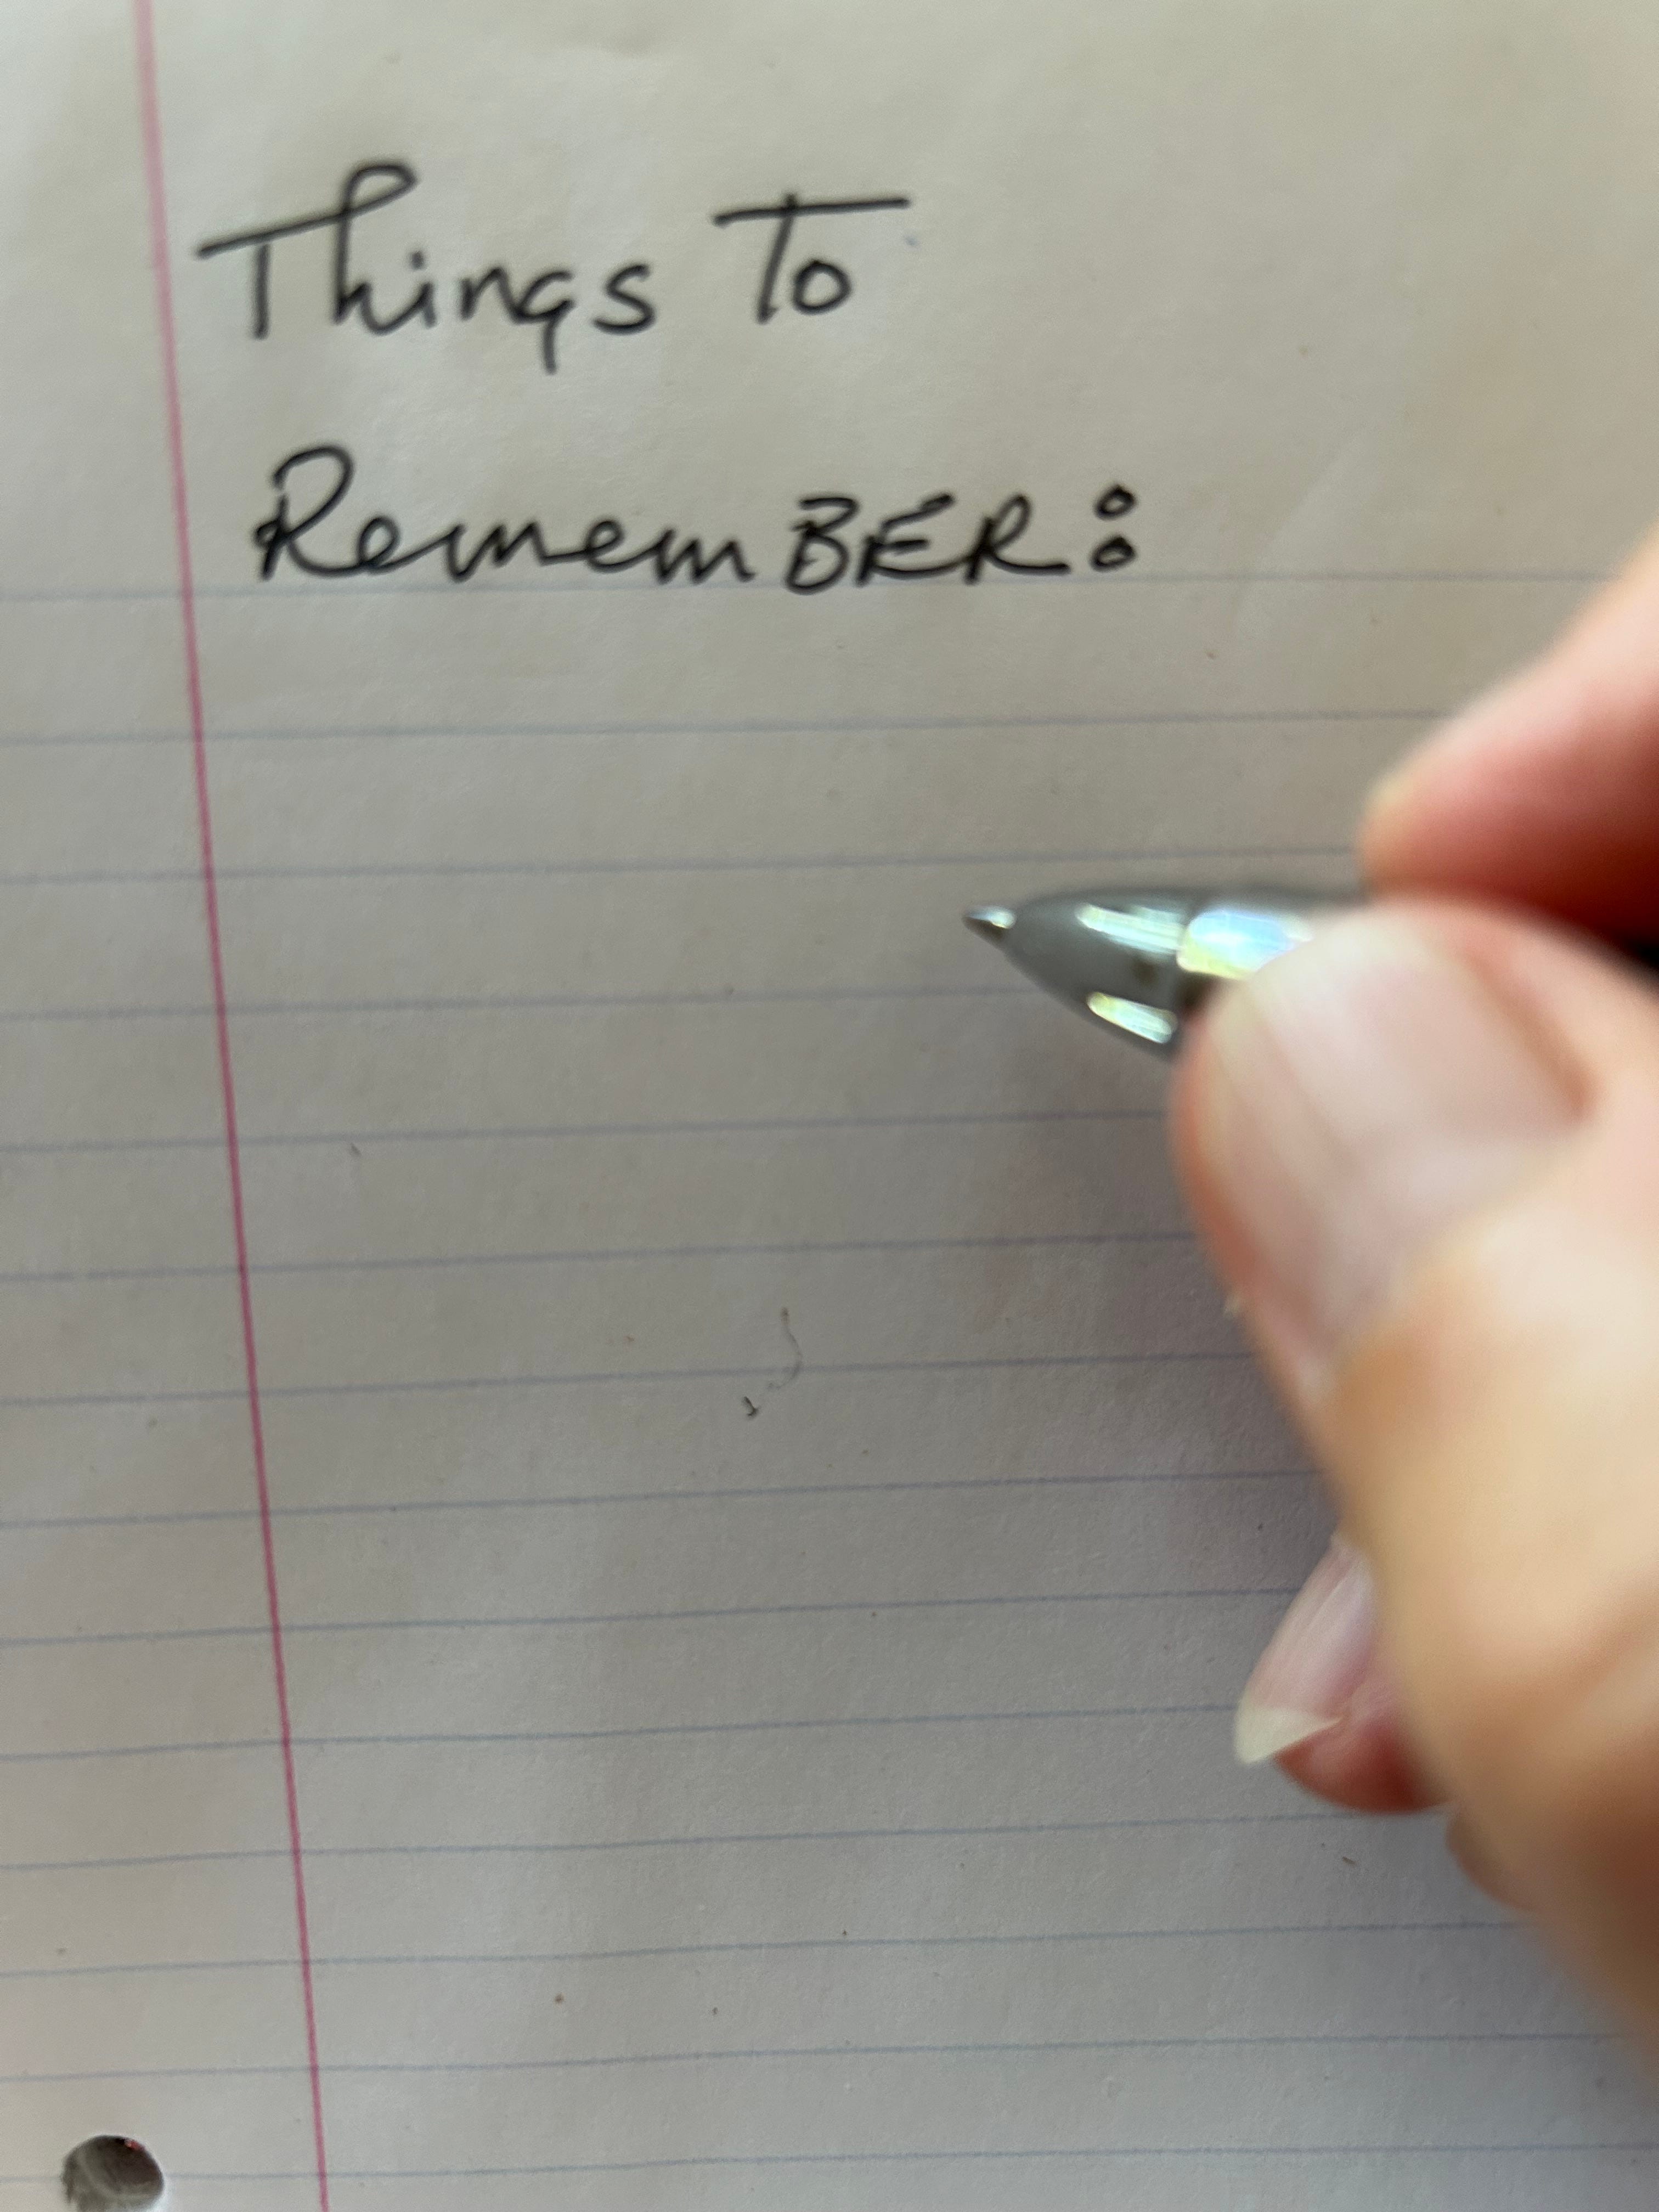 Things To
RememBER: